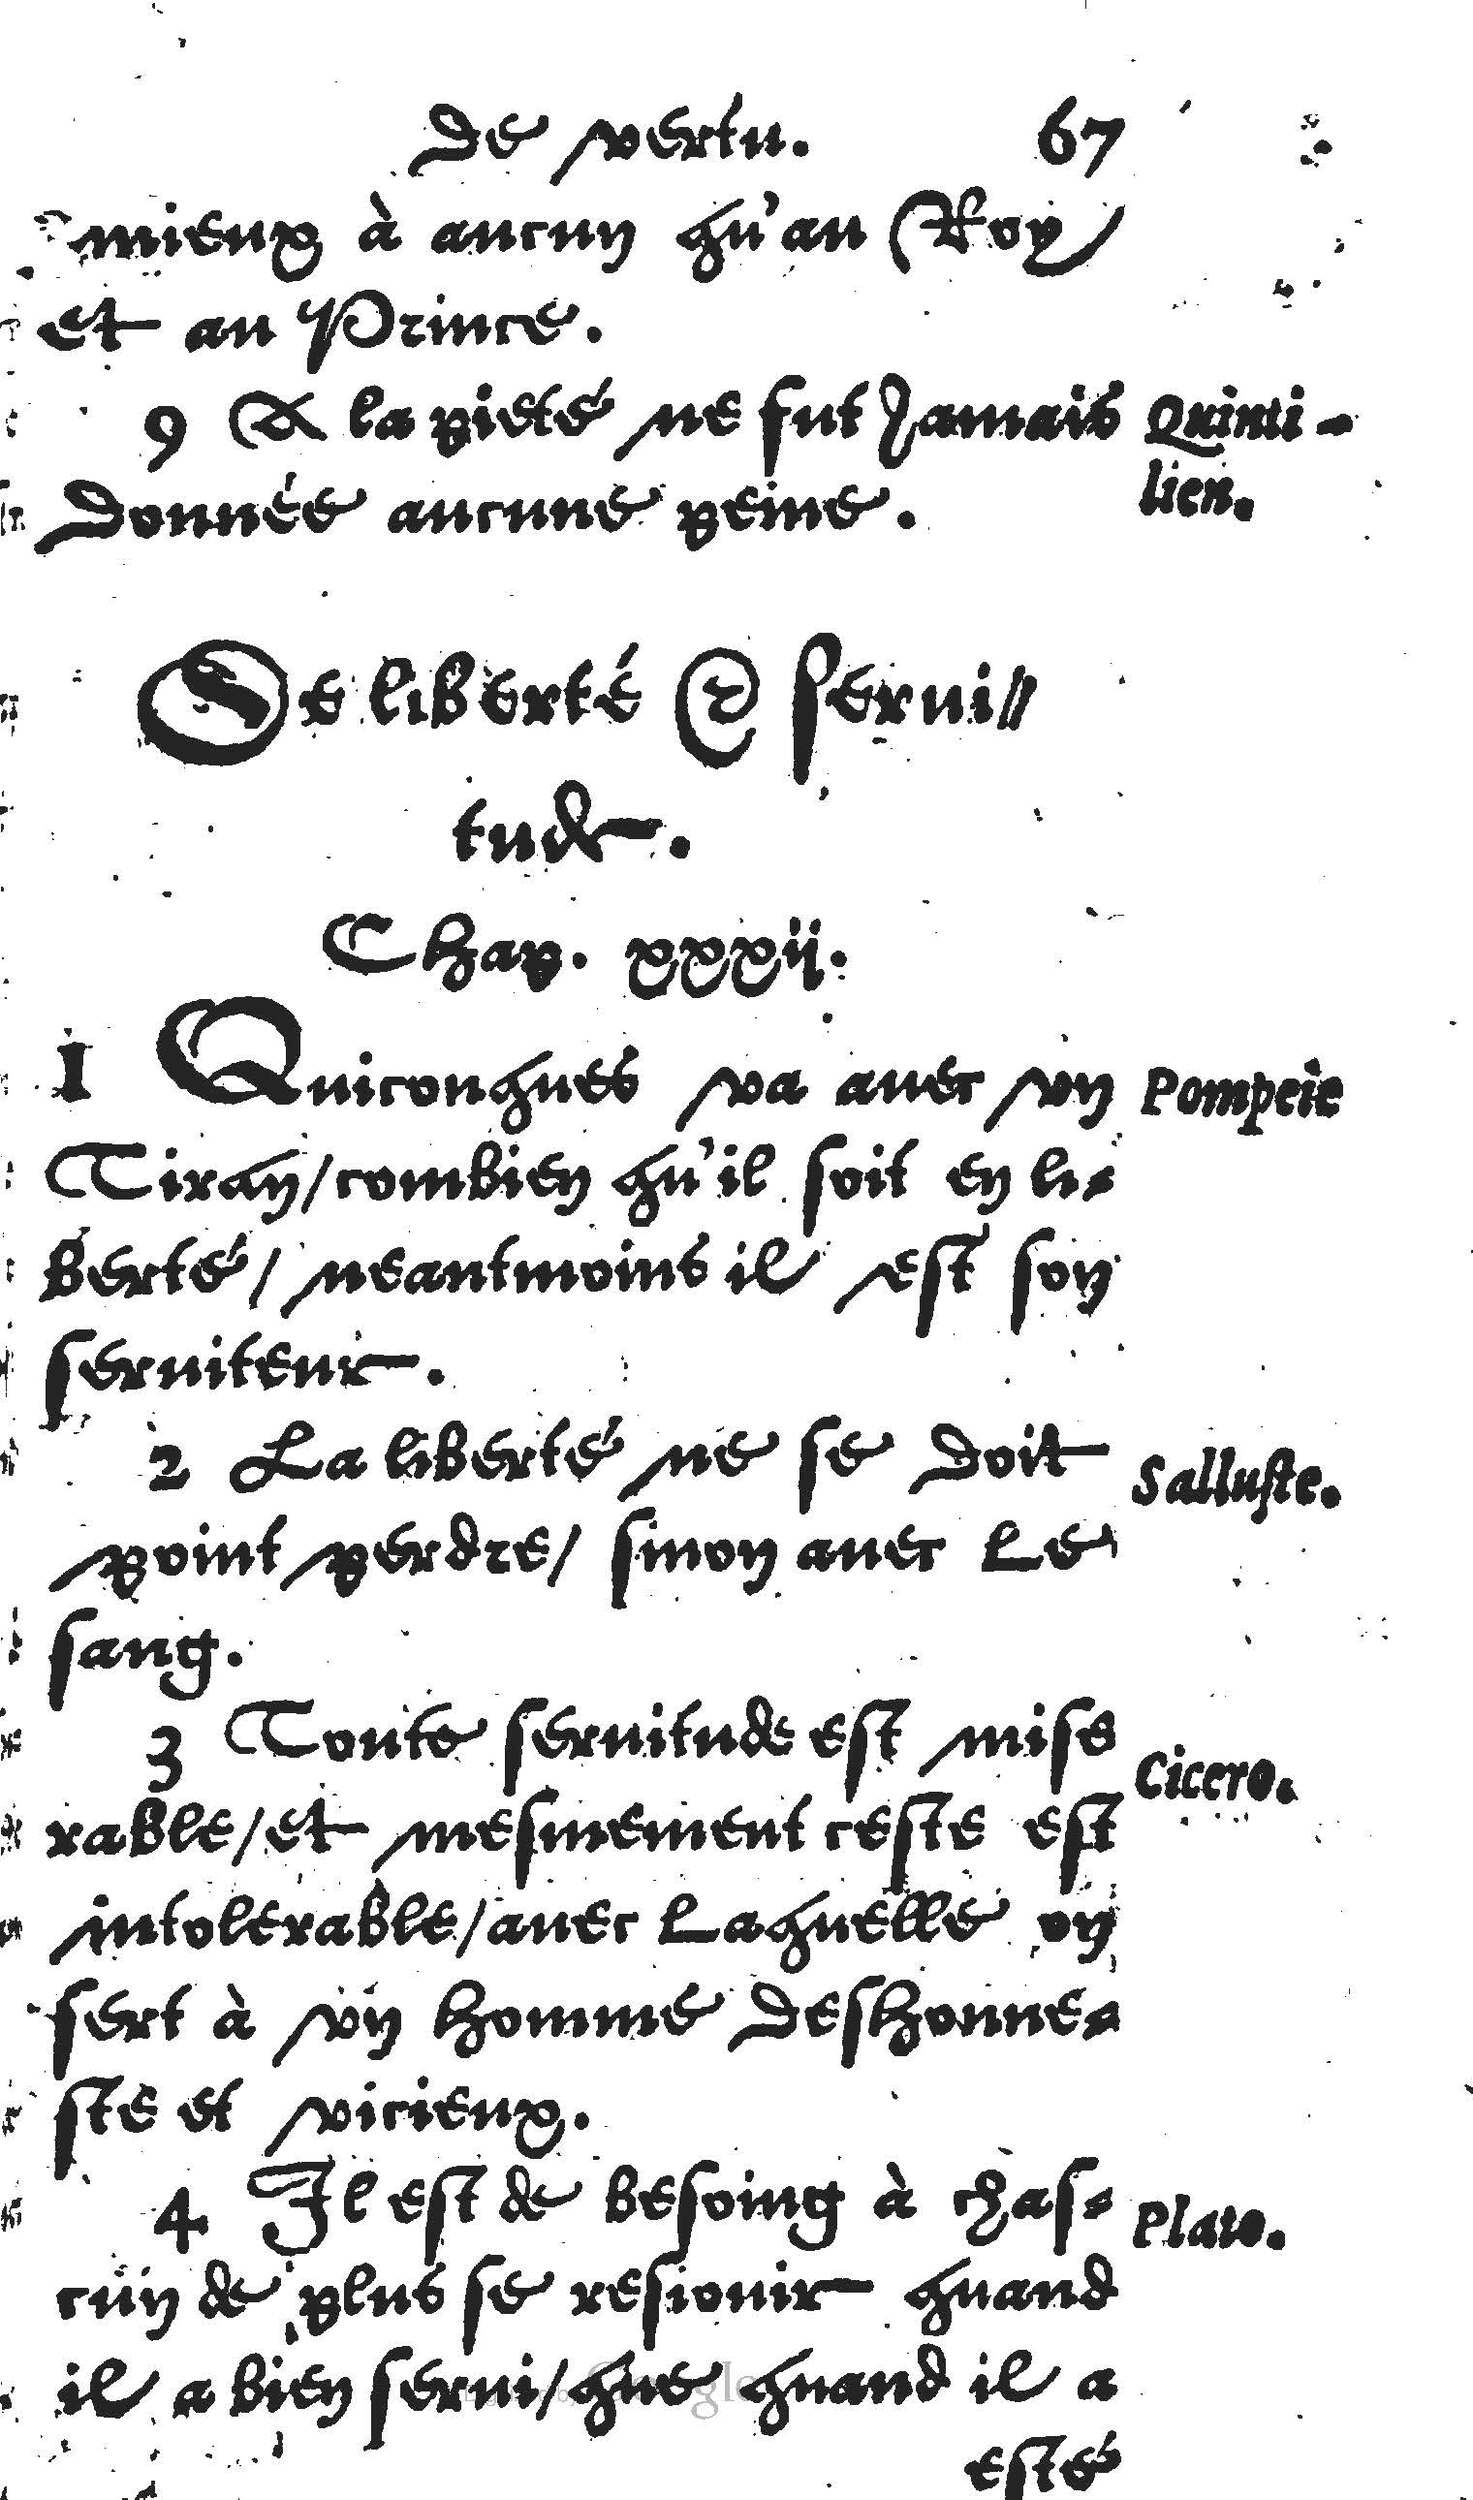 De vertu. 67
mieux à aucun qu'au Roy
et au Prince.
9 A la pieté ne fut Jamais Quinti-
donnée aucune peine. lien.
De liberté & serui-
tude.
Chap. xxxij.
1 Quiconques va auec vn Pompeie
Tiran/combien qu'il soit en li-
berté/ neantmoins il est son
seruiteur.
2 La liberté ne se doit Salluste.
point perdre/ sinon auec Le
sang.
3 Toute seruitude est mise Cicero.
rable/et mesmement ceste est
intolerable/auec Laquelle on
sert à vn homme deshonne-
ste et vicieux.
4 Il est de besoing à chas- Plato.
cun de plus se resiouir quand
il a bien serui/que quand il a
esté